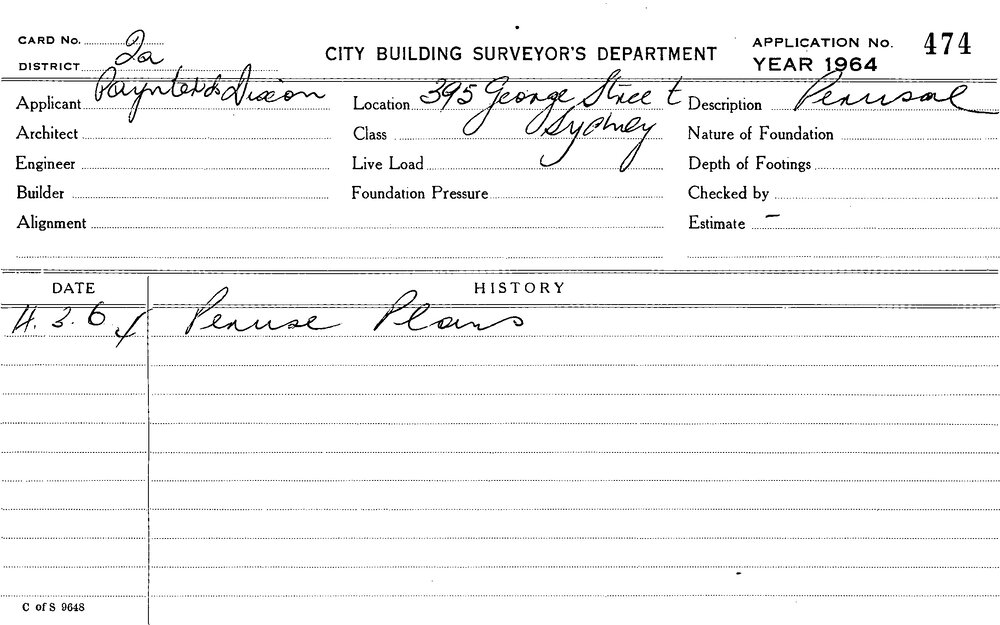 CARD No. 2a
DISTRICT
CITY BUILDING SURVEYOR'S DEPARTMENT
APPLICATION No. 474
YEAR 1964
Applicant Paynter & Dixon
Location 395 George Street
Sydney
Description Perusal
Architect
Class
Nature of Foundation
Engineer
Live Load
Depth of Footings
Builder
Foundation Pressure
Checked by
Alignment
Estimate –
DATE
HISTORY
4.3.64 Peruse Plans
C of S 9648